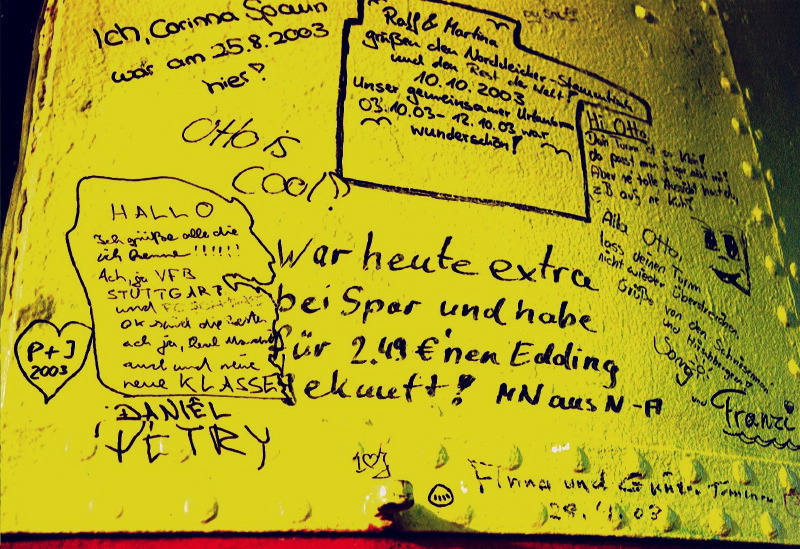 Ich, Corinna Spaun
war am 25.8.2003
hier!
Otto is
cool!
Ralf & Martina
grüßen den Norddeicher-
und den Rest der Welt!
10.10.2003
Unser gemeinsamer Urlaub
03.10.03 - 12.10.03 war
wunderschön!
Hi Otto
Dein Turm ist so klein!
da passt man
Aber ne tolle Aussicht hast du,
z.B. aus ne Kuh!
Alta Otto,
lass deinen Turm
nicht wieder überstreichen
Grüße von den
und
Sonja
und Franzi
HALLO
Ich grüße alle die
ich kenne !!!!!!
Ach, ja VFB
STUTTGART
und FC
OK sind die besten
ach ja, Real
auch und meine
neue KLASSE
DANIEL
PETRY
P + J
2003
War heute extra
bei Spar und habe
für 2.49 € 'nen Edding
gekauft! MN aus N-A
1 ♡ J
Anna und Günter
03